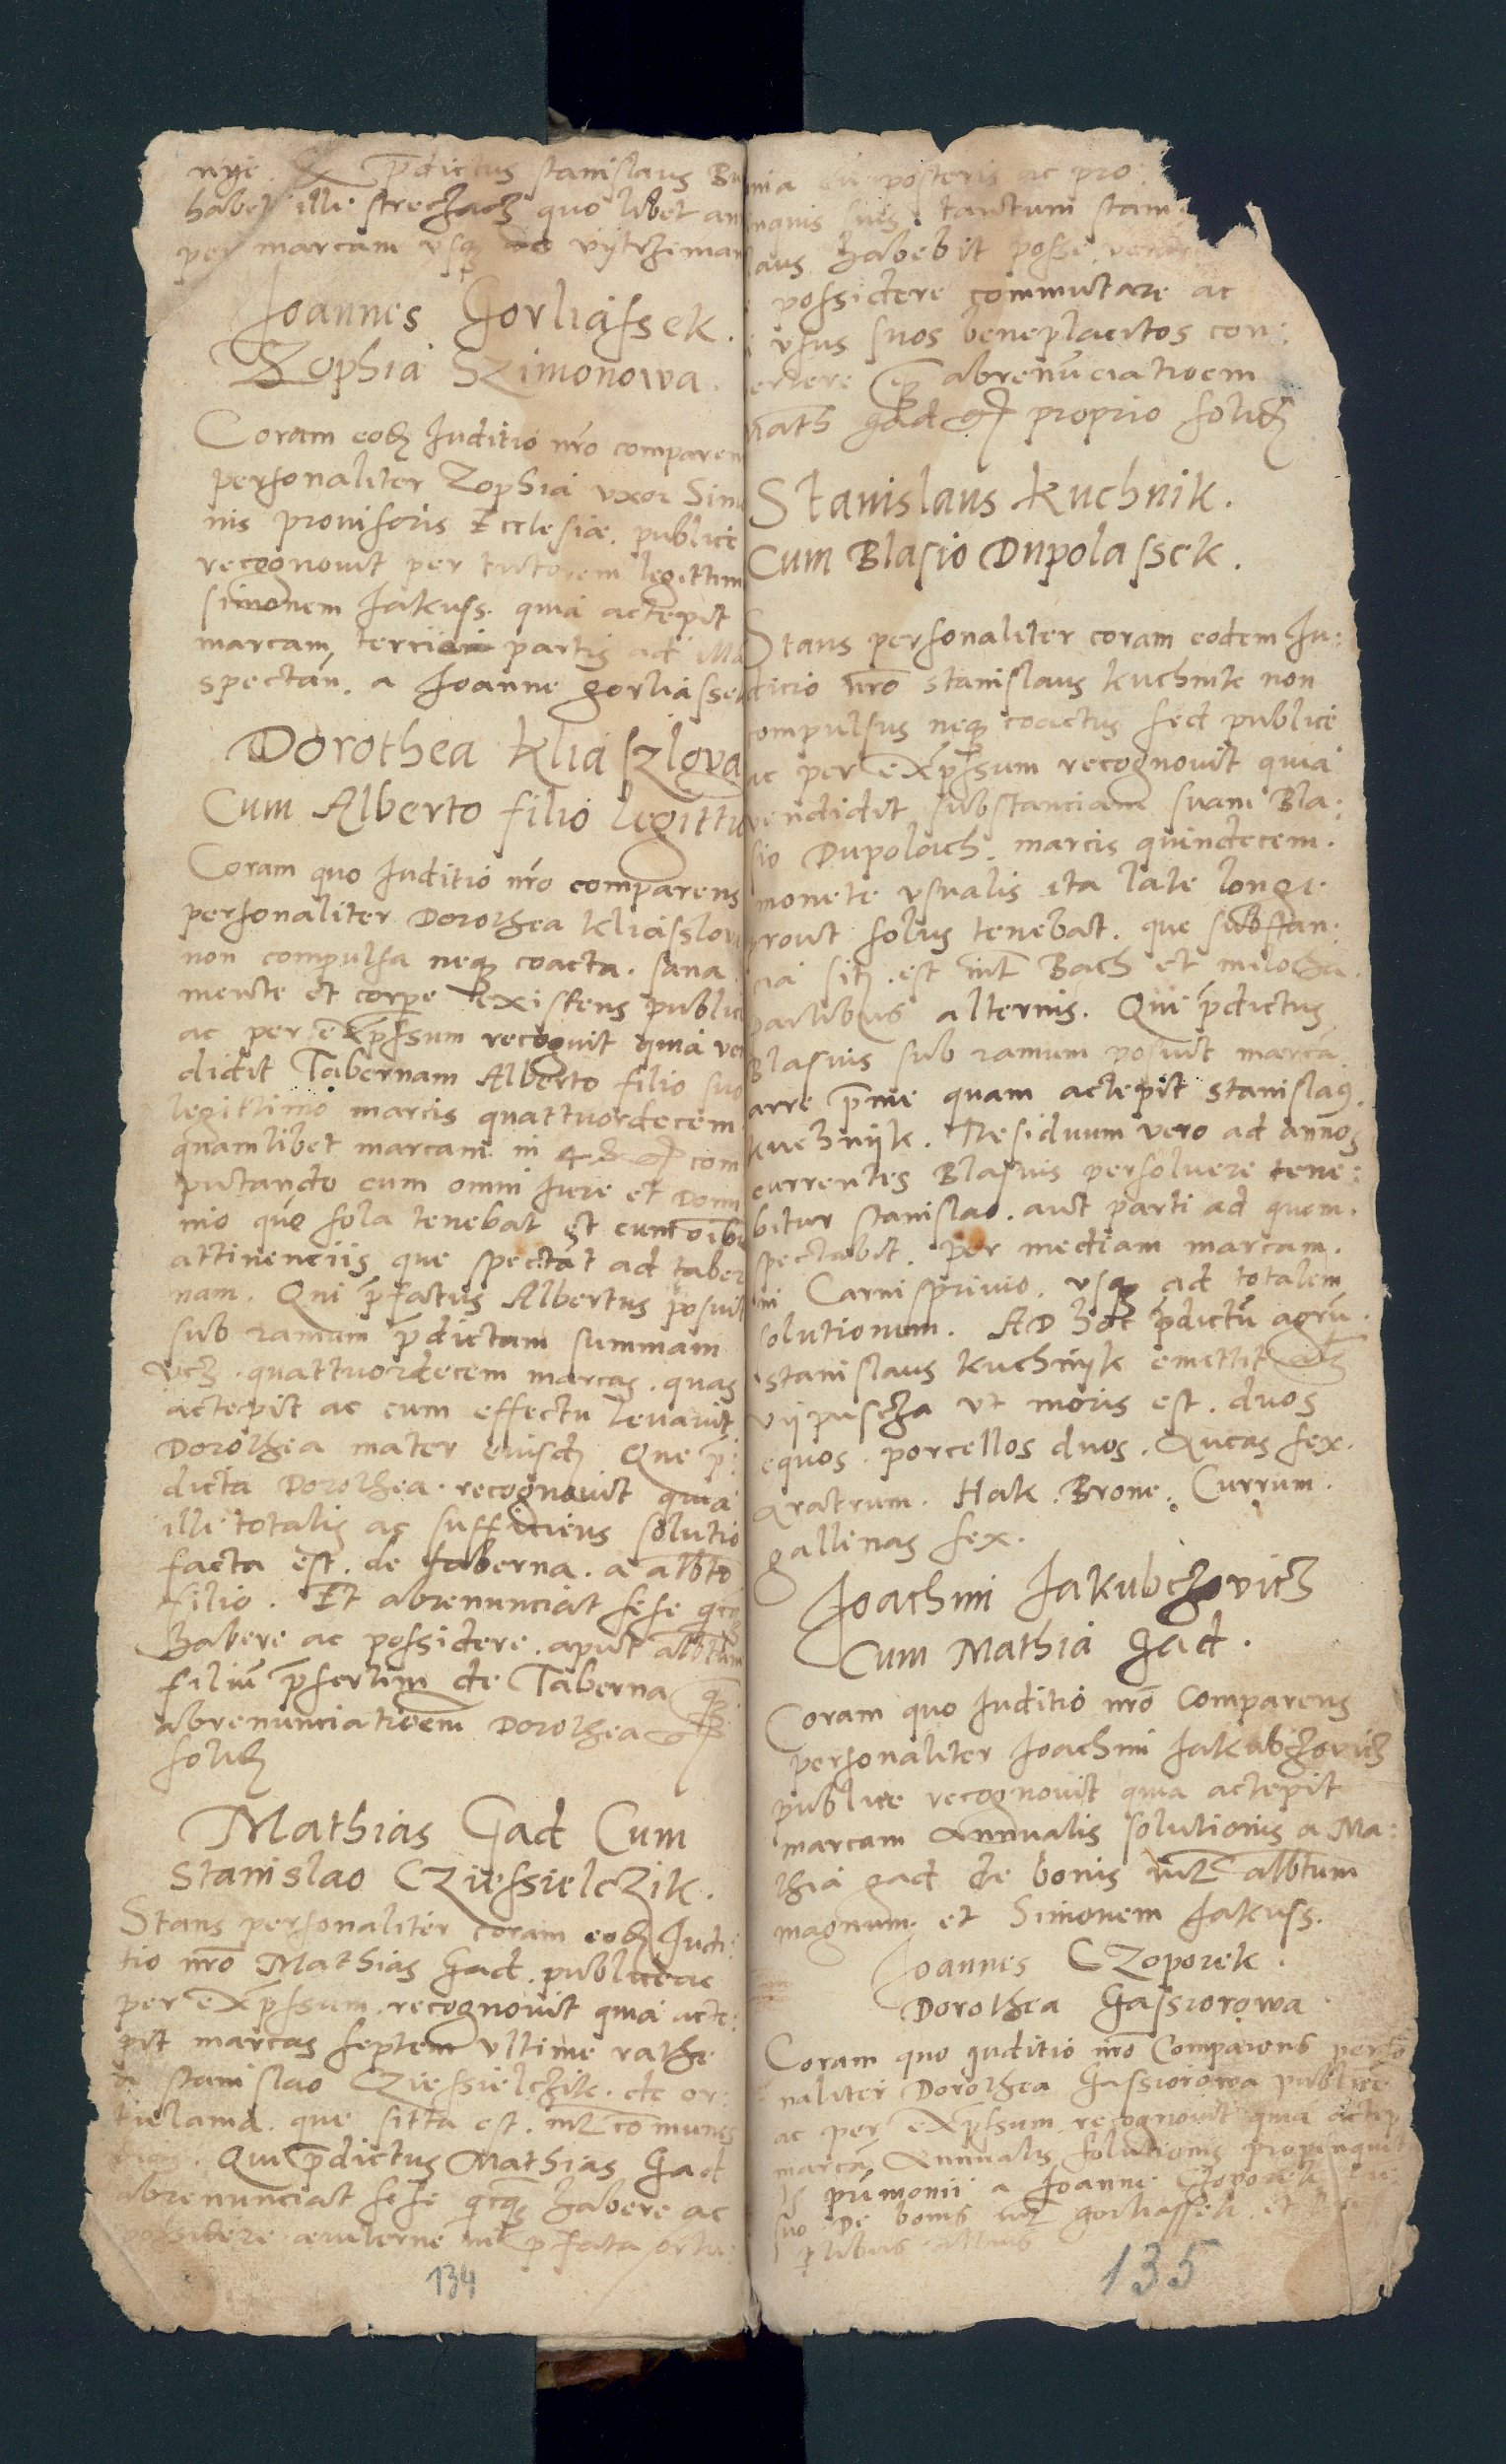 nye. prędictus stanislaus Bu
habet illi strechacz quo libet an
per marcam vsqꝫ ad vytrziman
Joannes Gorliassek.
Zophia Szimonowa.
Coram eodꝫ Juditio nro̅ comparen
personaliter Zophia vxor Simo
nis prouisoris Ecclesiæ. publice
recognouit per tutorem legittim
simonem Jakuss. quia accepit
marcam partis ad
spectan̅. a Joanne gorliassek
Dorothea Kliaszlova
Cum Alberto filio legittim
Coram quo Juditio nr̅o comparens
personaliter Dorothea Kliasslova
non compulsa neqꝫ coacta. sana
mente et corpe̅ existens public
ac per exp̅ssum recognuit quia ven
didit Tabernam Alberto filio suo
legittimo marcis quattuordecem
quamlibet marcam in 48 com
putando cum omni Jure et Domi
nio quo sola tenebat et cum oi̅bus
attinenciis que spectat ad taber
nam. Qui p̅fatus Albertus posuit
sub ramum p̅dictam summam
vicꝫ. quattuordecem marcas. quas
accepit ac cum effectu leuauit
Dorothea mater euisdꝫ Que p̅:
dicta Dorothea. recognouit quia
illi totalis ac sufficiens solutio
facta est. de taberna. a albto̅
filio. Et abrenunciat sese qicqꝫ
habere ac possidere. aput albtum̅
filiu̅ p̅sertim de Taberna
abrenunciatioem̅ Dorothea
soluꝫ
Mathias Gad Cum
Stanislao Cziessielczik.
Stans personaliter coram eodꝫ Judi:
tio nro̅ Mathias Gad. publice ac
per exp̅ssum. recognouit quia acce:
pit marcas septem vltime rathe
a stanislao Cziessielczik. de or:
tielania. que sitta est. int̅ co̅munes
Qui p̅dictus Mathias Gad
abrenunciat sese qicqꝫ habere ac
possidere æuiterne int̅ p̅fata ortu:
134
nia cu̅ posteris ac pro:
inquis suis. tantum stanis
laus habebit posse vende
possidere commutare ac
vsus suos beneplacitos con:
ertere abrenu̅ciatioem
math gad proprio soluꝫ
Stanislaus Kuchnik.
Cum Blasio Dupolassek.
Stans personaliter coram eodem Ju:
dicio nro̅ stanislaus kuchnik non
compulsus neqꝫ coactus sed publice
ac per exp̅ssum recognouit quia
vendidit substanciam suam Bla:
sio Dupoloich. marcis quindecem.
monete vsualis ita late longe
prout solus tenebat. que substan:
cia sitꝫ. est int̅ Bach et milocha.
partibus alternis. Qui p̅dictus
Blasius sub ramum posuit marca̅
arre p̅me quam accepit stanislaꝰ
kuchnyk. Residuum vero ad annos
currentes Blasius persoluere tene:
bitur stanislao. aut parti ad quem.
spectabit. per mediam marcam.
in Carnisprivio. vsqꝫ ad totalem
solutionem. Ad hoc p̅dictu̅ agru̅.
stanislaus kuchnyk emettit
vypuscza vt moris est. duos
equos. porcellos duos. Aucas sex.
aratrum. Hak. Brone. Currum.
gallinas sex.
Joachim Jakubczovicz
Cum Mathia Gad.
Coram quo Juditio nro̅ Comparens
personaliter Joachim Jakubczovicz
publice recognouit quia accepit
marcam Annualis solutionis a Ma:
thia gad de bonis int̅ albtum̅
magnum. et Simonem Jakuss.
Joannes Czoporek.
Dorothea Gassiorowa.
Coram quo Juditio nro̅ Comparens perso
naliter Dorothea Gassiorowa publice
ac per exp̅ssum recognouit quia accep
marca̅ Annualis solutionis propinquit
is a Joanne Czoporek
suo de bonis int̅ gorliassek. et
135